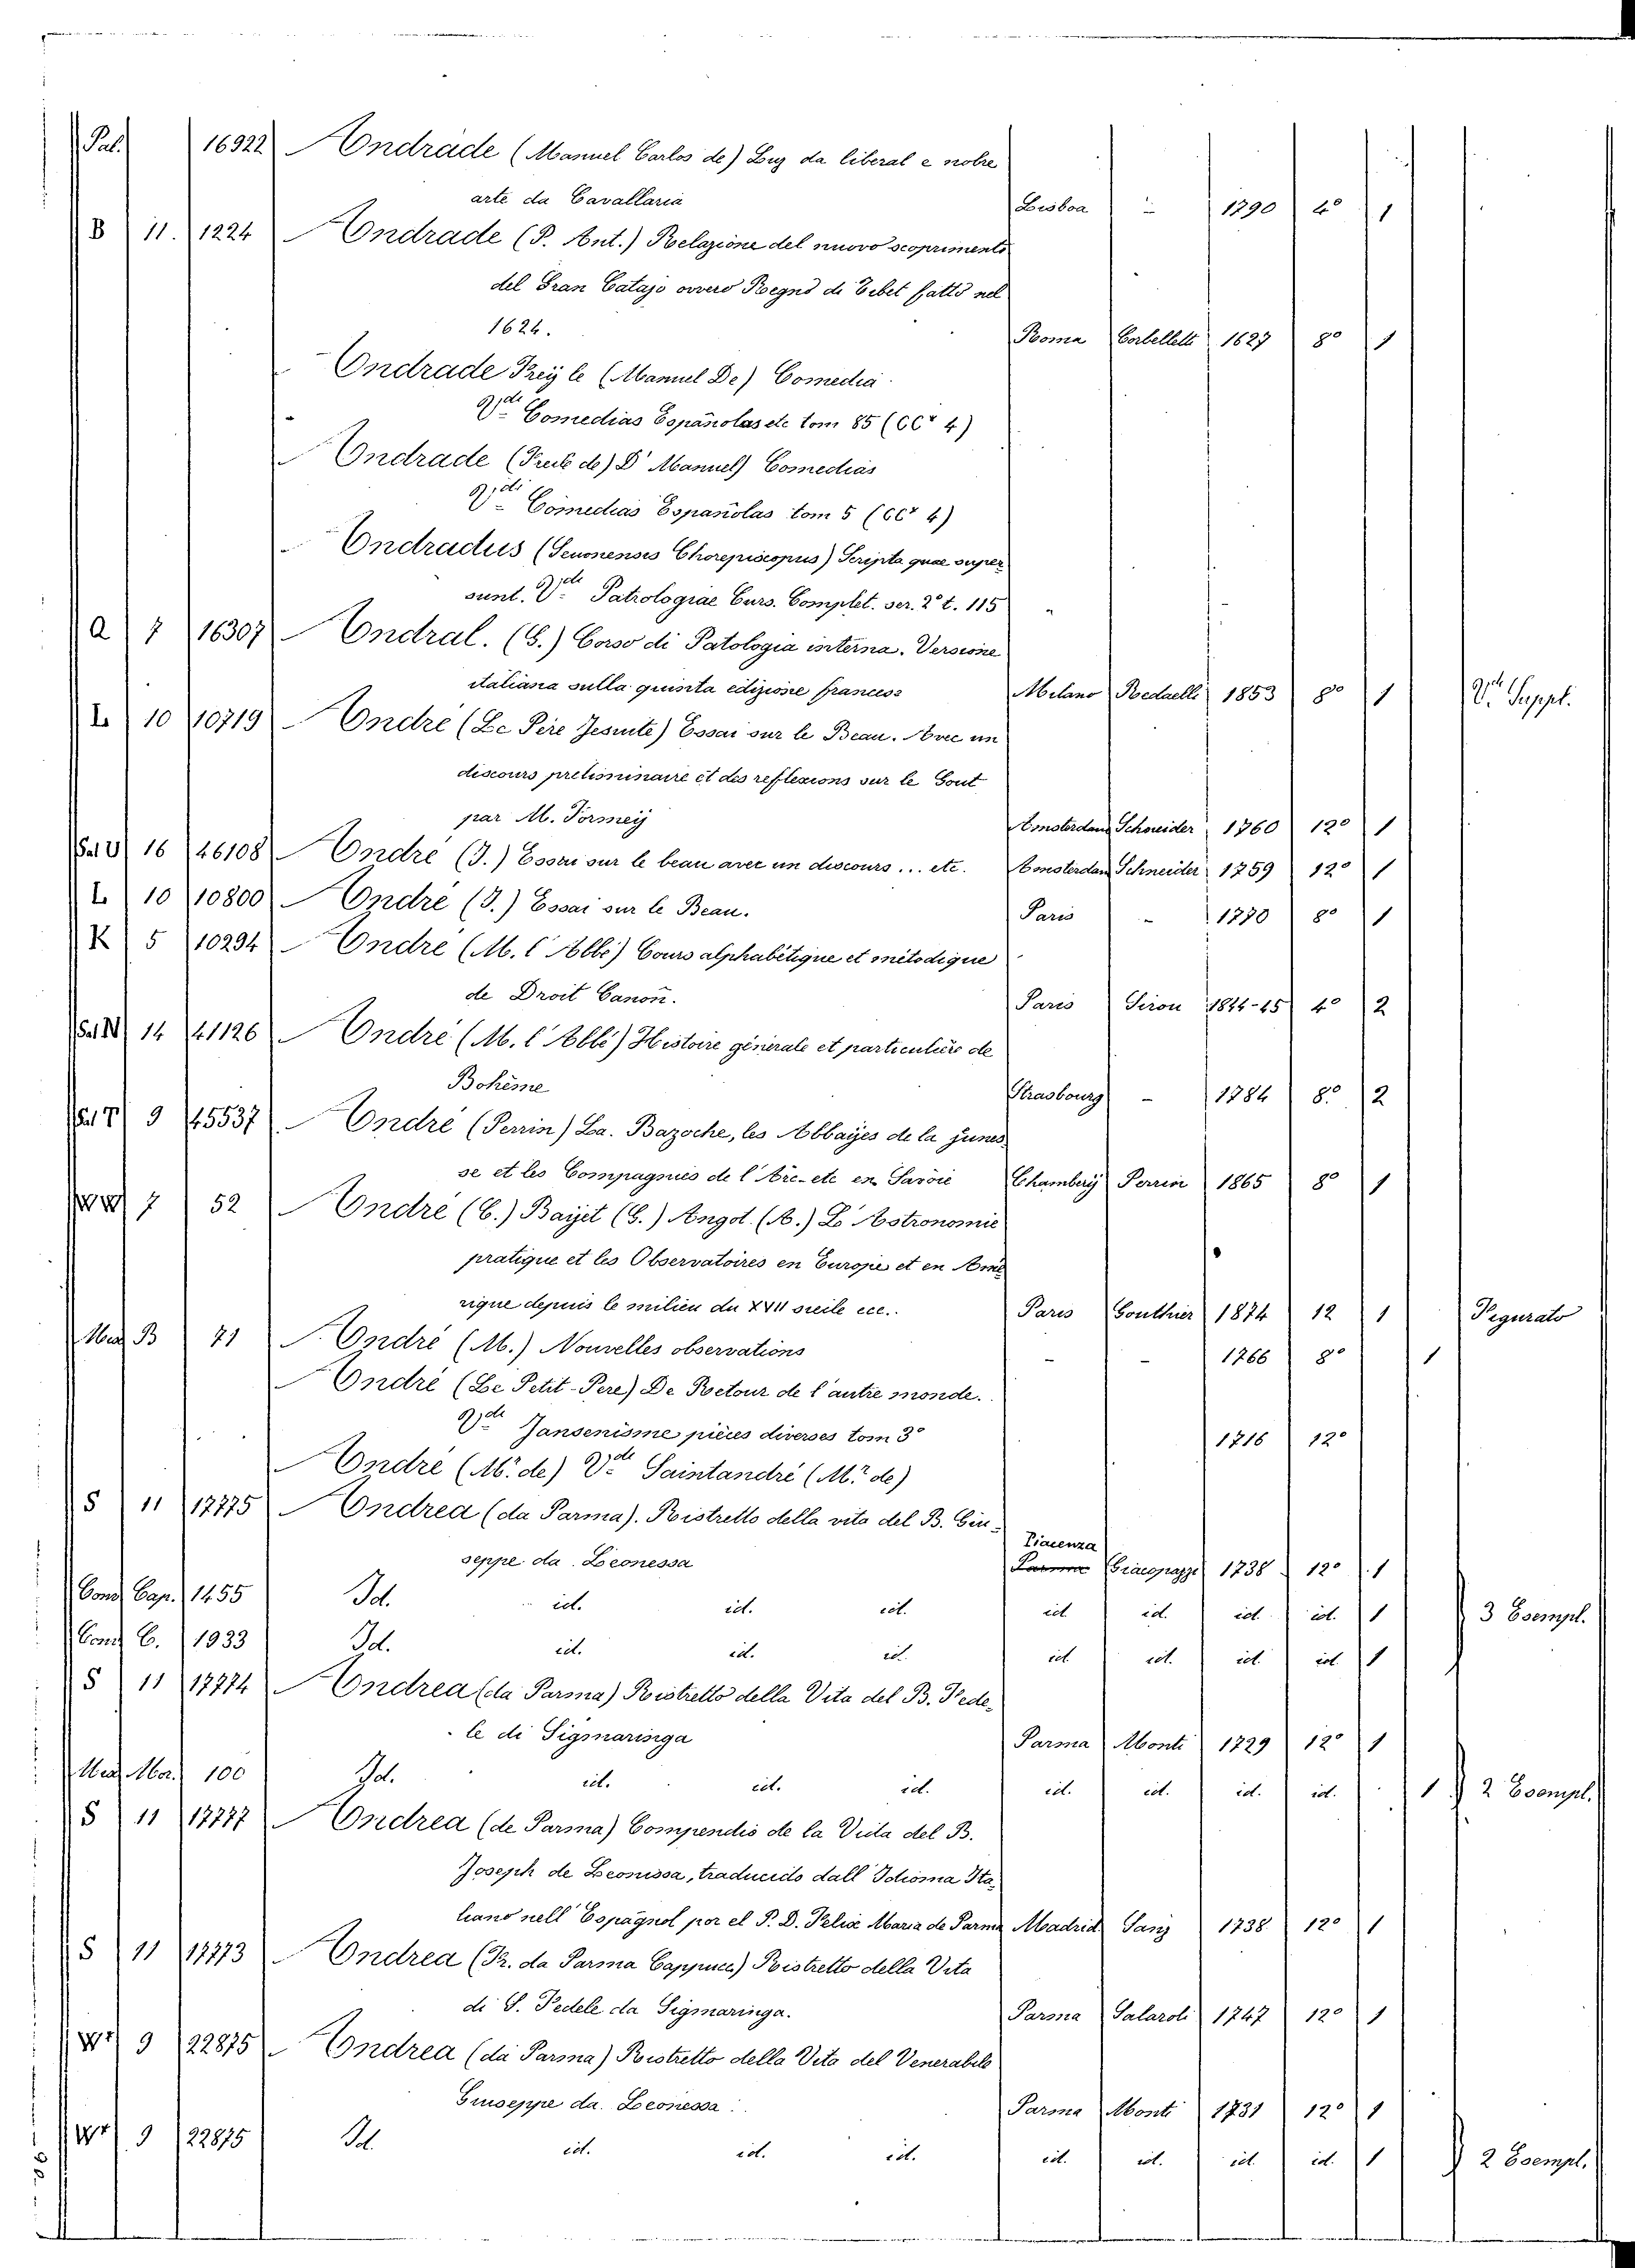 Pal. 16922 Andrade (Manuel Carlos de) Luz da liberal e nobre
arte da Cavallaria Lisboa - 1790 4° 1
B 11. 1224 Andrade (P. Ant.) Relazione del nuovo scoprimento
del Gran Catajo ovvero Regno di Tibet fatto nel
1624. Roma Corbelletti 1627 8° 1
Andrade Freyle (Manuel De) Comedia
Vde Comedias Españolas etc tom 85 (CC* 4)
Andrade (Freile de) D' Manuel) Comedias
Vdi Comedias Espanolas tom 5 (CC* 4)
Andradus (Senonensis Chorepiscopus) Scripta quae super
sunt. Vde Patrologiae Curs. Complet. ser. 2° t. 115
Q 7 16307 Andral. (G.) Corso di Patologia interna. Versione
italiana sulla quinta edizione francese Milano Redaelli 1853 8° 1 Vde Suppl.
L 10 10719 André (Le Pere Jesuite) Essai sur le Beau. Avec un
discours preliminaire et des reflexions sur le Gout
par M. Formey Amsterdam Schneider 1760 12° 1
Sal U 16 46108 André (J.) Essai sur le beau avec un discours... etc. Amsterdam Schneider 1759 12° 1
L 10 10800 André (J.) Essai sur le Beau. Paris - 1770 8° 1
K 5 10294 André (M. l'Abbé) Cours alphabétique et métodique
de Droit Canon. Paris Siron 1844-45 4° 2
Sal N 14 41126 André (M. l'Abbé) Histoire générale et particuliére de
Bohème Strasbourg - 1784 8° 2
Sal T 9 45537 André (Perrin) La. Bazoche, les Abbayes de la junes
se et les Compagnies de l'Arc-etc en Savoie Chambery Perrin 1865 8° 1
7 52 André (C.) Bayet (G.) Angot. (A.) L'Astronomie
pratique et les Observatoires en Europe et en Amé
rique depuis le milieu du XVII siecle ecc.. Paris Gouthier 1874 12 1 Segurato
Med B 71 André (M.) Nouvelles observations - - 1766 8° 1
André (Le Petit-Pere) De Retour de l'autre monde.
Vde Jansenisme pièces diverses tom 3° 1716 12°
André (Mr de) Vde Saintandré (Mr de)
S 11 17775 Andrea (da Parma). Ristretto della vita del B. Giu-
Piacenza
seppe da Leonessa Parma Giacopazzi 1738 12° 1
Cons Cap. 1455 Id. id. id. id. id. id. id. id. 1 3 Esempl.
Cons C. 1933 Id. id. id. id. id. id. id. id. 1
S 11 17774 Andrea (da Parma) Ristretto della Vita del B. Fede-
le di Sigmaringa Parma Monti 1729 12° 1
Med Mor. 100 Id. id. id. id. id. id. id. id. 1 2 Esempl.
S 11 17777 Andrea (de Parma) Compendio de la Vida del B.
Joseph de Leonissa, traducido dall Idioma Ita
liano nell'Espagnol por el P. D. Felix Maria de Parma Madrid Sanz 1738 12° 1
S 11 17773 Andrea (P. da Parma Cappucc) Ristretto della Vita
di S. Fedele da Sigmaringa. Parma Salaroli 1747 12° 1
W* 9 22875 Andrea (da Parma) Ristretto della Vita del Venerabile
Giuseppe da Leonessa. Parma Monti 1731 12° 1
W* 9 22875 Id. id. id. id. id. id. id. id. 1 2 Esempl.